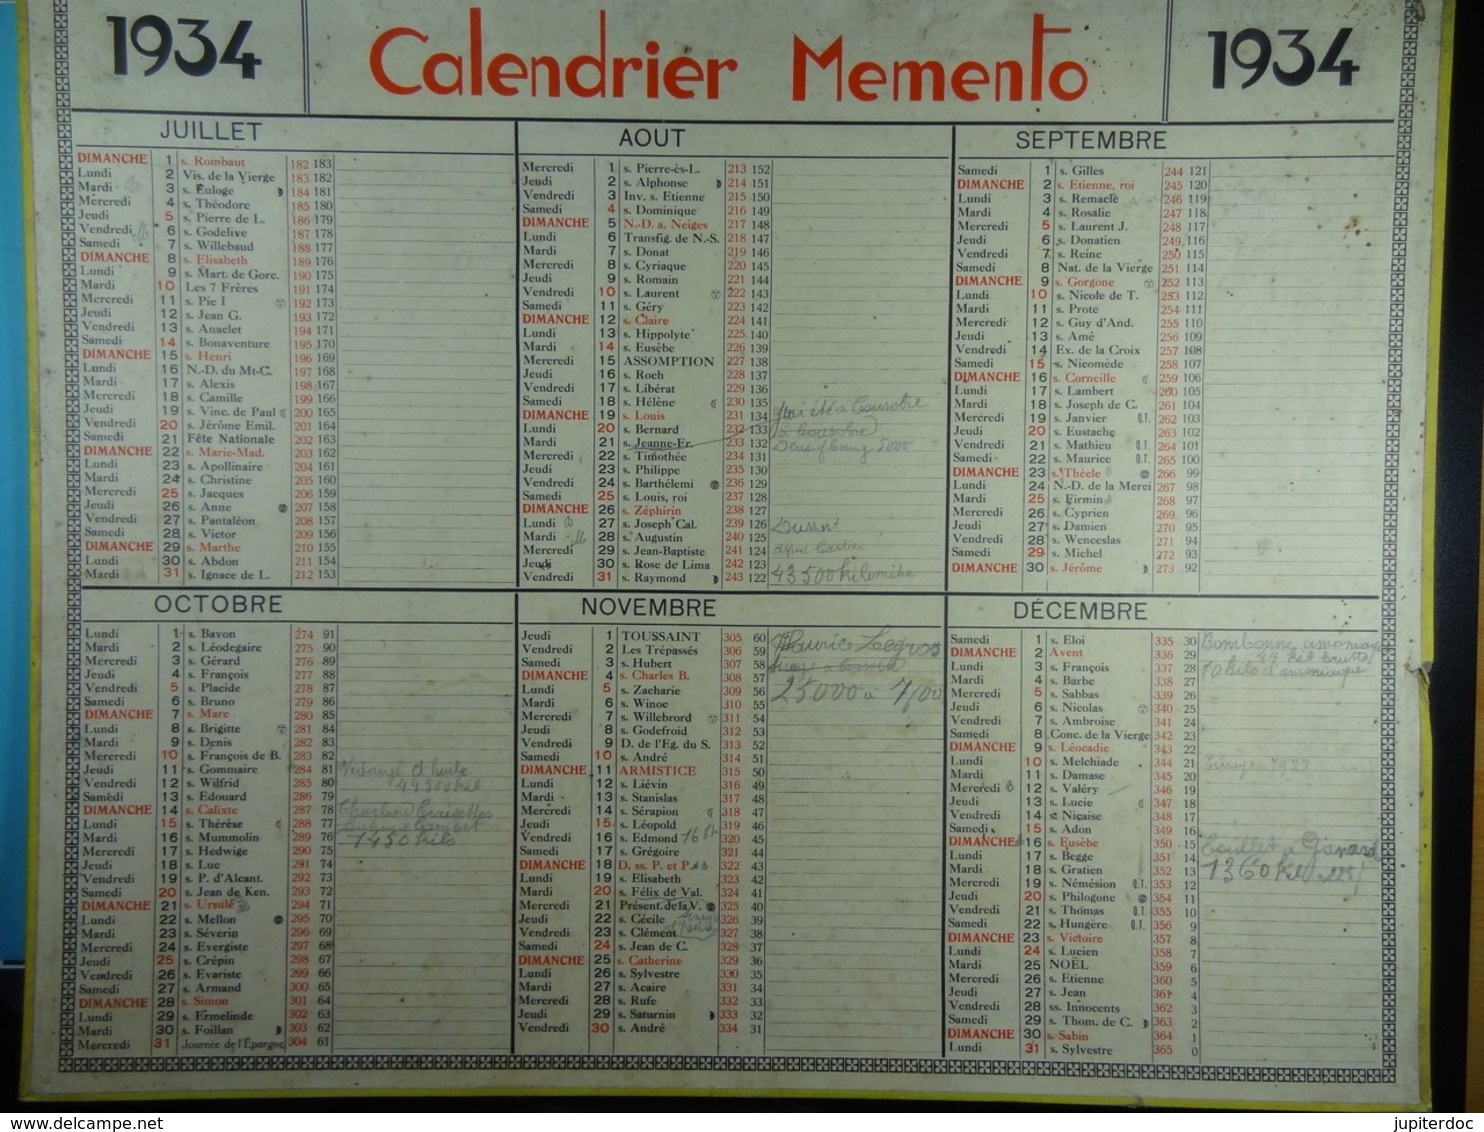 1934 Calendrier Memento 1934
JUILLET
DIMANCHE 1 s. Rombaut 182 183
Lundi 2 Vis. de la Vierge 183 182
Mardi 3 s. Euloge 184 181
Mercredi 4 s. Théodore 185 180
Jeudi 5 s. Pierre de L. 186 179
Vendredi 6 s. Godelive 187 178
Samedi 7 s. Willebaud 188 177
DIMANCHE 8 s. Elisabeth 189 176
Lundi 9 s. Mart. de Gorc. 190 175
Mardi 10 Les 7 Frères 191 174
Mercredi 11 s. Pie I 192 173
Jeudi 12 s. Jean G. 193 172
Vendredi 13 s. Anaclet 194 171
Samedi 14 s. Bonaventure 195 170
DIMANCHE 15 s. Henri 196 169
Lundi 16 N.-D. du Mt-C. 197 168
Mardi 17 s. Alexis 198 167
Mercredi 18 s. Camille 199 166
Jeudi 19 s. Vinc. de Paul 200 165
Vendredi 20 s. Jérôme Emil. 201 164
Samedi 21 Fête Nationale 202 163
DIMANCHE 22 s. Marie-Mad. 203 162
Lundi 23 s. Apollinaire 204 161
Mardi 24 s. Christine 205 160
Mercredi 25 s. Jacques 206 159
Jeudi 26 s. Anne 207 158
Vendredi 27 s. Pantaléon 208 157
Samedi 28 s. Victor 209 156
DIMANCHE 29 s. Marthe 210 155
Lundi 30 s. Abdon 211 154
Mardi 31 s. Ignace de L. 212 153
AOUT
Mercredi 1 s. Pierre-ès-L. 213 152
Jeudi 2 s. Alphonse 214 151
Vendredi 3 Inv. s. Etienne 215 150
Samedi 4 s. Dominique 216 149
DIMANCHE 5 N.-D. a. Neiges 217 148
Lundi 6 Transfig. de N.-S. 218 147
Mardi 7 s. Donat 219 146
Mercredi 8 s. Cyriaque 220 145
Jeudi 9 s. Romain 221 144
Vendredi 10 s. Laurent 222 143
Samedi 11 s. Géry 223 142
DIMANCHE 12 s. Claire 224 141
Lundi 13 s. Hippolyte 225 140
Mardi 14 s. Eusèbe 226 139
Mercredi 15 ASSOMPTION 227 138
Jeudi 16 s. Roch 228 137
Vendredi 17 s. Libérat 229 136
Samedi 18 s. Hélène 230 135
DIMANCHE 19 s. Louis 231 134
Lundi 20 s. Bernard 232 133
Mardi 21 s. Jeanne-Fr. 233 132
Mercredi 22 s. Timothée 234 131
Jeudi 23 s. Philippe 235 130
Vendredi 24 s. Barthélemi 236 129
Samedi 25 s. Louis, roi 237 128
DIMANCHE 26 s. Zéphirin 238 127
Lundi 27 s. Joseph Cal. 239 126
Mardi 28 s. Augustin 240 125
Mercredi 29 s. Jean-Baptiste 241 124
Jeudi 30 s. Rose de Lima 242 123
Vendredi 31 s. Raymond 243 122 43500 kilomètre
SEPTEMBRE
Samedi 1 s. Gilles 244 121
DIMANCHE 2 s. Etienne, roi 245 120
Lundi 3 s. Remacle 246 119
Mardi 4 s. Rosalie 247 118
Mercredi 5 s. Laurent J. 248 117
Jeudi 6 s. Donatien 249 116
Vendredi 7 s. Reine 250 115
Samedi 8 Nat. de la Vierge 251 114
DIMANCHE 9 s. Gorgone 252 113
Lundi 10 s. Nicole de T. 253 112
Mardi 11 s. Prote 254 111
Mercredi 12 s. Guy d'And. 255 110
Jeudi 13 s. Amé 256 109
Vendredi 14 Ex. de la Croix 257 108
Samedi 15 s. Nicomède 258 107
DIMANCHE 16 s. Corneille 259 106
Lundi 17 s. Lambert 260 105
Mardi 18 s. Joseph de C. 261 104
Mercredi 19 s. Janvier Q.T. 262 103
Jeudi 20 s. Eustache 263 102
Vendredi 21 s. Mathieu Q.T. 264 101
Samedi 22 s. Maurice Q.T. 265 100
DIMANCHE 23 s. Thècle 266 99
Lundi 24 N.-D. de la Merci 267 98
Mardi 25 s. Firmin 268 97
Mercredi 26 s. Cyprien 269 96
Jeudi 27 s. Damien 270 95
Vendredi 28 s. Wenceslas 271 94
Samedi 29 s. Michel 272 93
DIMANCHE 30 s. Jérôme 273 92
OCTOBRE
Lundi 1 s. Bavon 274 91
Mardi 2 s. Léodegaire 275 90
Mercredi 3 s. Gérard 276 89
Jeudi 4 s. François 277 88
Vendredi 5 s. Placide 278 87
Samedi 6 s. Bruno 279 86
DIMANCHE 7 s. Marc 280 85
Lundi 8 s. Brigitte 281 84
Mardi 9 s. Denis 282 83
Mercredi 10 s. François de B. 283 82
Jeudi 11 s. Gommaire 284 81
Vendredi 12 s. Wilfrid 285 80
Samedi 13 s. Edouard 286 79
DIMANCHE 14 s. Calixte 287 78
Lundi 15 s. Thérèse 288 77
Mardi 16 s. Mummolin 289 76 1450 kilo
Mercredi 17 s. Hedwige 290 75
Jeudi 18 s. Luc 291 74
Vendredi 19 s. P. d'Alcant. 292 73
Samedi 20 s. Jean de Ken. 293 72
DIMANCHE 21 s. Ursule 294 71
Lundi 22 s. Mellon 295 70
Mardi 23 s. Séverin 296 69
Mercredi 24 s. Evergiste 297 68
Jeudi 25 s. Crépin 298 67
Vendredi 26 s. Evariste 299 66
Samedi 27 s. Armand 300 65
DIMANCHE 28 s. Simon 301 64
Lundi 29 s. Ermelinde 302 63
Mardi 30 s. Foillan 303 62
Mercredi 31 Journée de l'Epargne 304 61
NOVEMBRE
Jeudi 1 TOUSSAINT 305 60 Maurice Legros
Vendredi 2 Les Trépassés 306 59
Samedi 3 s. Hubert 307 58
DIMANCHE 4 s. Charles B. 308 57 25000 a
Lundi 5 s. Zacharie 309 56
Mardi 6 s. Winoc 310 55
Mercredi 7 s. Willebrord 311 54
Jeudi 8 s. Godefroid 312 53
Vendredi 9 D. de l'Eg. du S. 313 52
Samedi 10 s. André 314 51
DIMANCHE 11 ARMISTICE 315 50
Lundi 12 s. Liévin 316 49
Mardi 13 s. Stanislas 317 48
Mercredi 14 s. Sérapion 318 47
Jeudi 15 s. Léopold 319 46
Vendredi 16 s. Edmond 320 45
Samedi 17 s. Grégoire 321 44
DIMANCHE 18 D. ss. P. et P. 322 43
Lundi 19 s. Elisabeth 323 42
Mardi 20 s. Félix de Val. 324 41
Mercredi 21 Présent. de la V. 325 40
Jeudi 22 s. Cécile 326 39
Vendredi 23 s. Clément 327 38
Samedi 24 s. Jean de C. 328 37
DIMANCHE 25 s. Catherine 329 36
Lundi 26 s. Sylvestre 330 35
Mardi 27 s. Acaire 331 34
Mercredi 28 s. Rufe 332 33
Jeudi 29 s. Saturnin 333 32
Vendredi 30 s. André 334 31
DÉCEMBRE
Samedi 1 s. Eloi 335 30 Bombonne amoniaque
DIMANCHE 2 Avent 336 29
Lundi 3 s. François 337 28
Mardi 4 s. Barbe 338 27
Mercredi 5 s. Sabbas 339 26
Jeudi 6 s. Nicolas 340 25
Vendredi 7 s. Ambroise 341 24
Samedi 8 Conc. de la Vierge 342 23
DIMANCHE 9 s. Léocadie 343 22
Lundi 10 s. Melchiade 344 21
Mardi 11 s. Damase 345 20
Mercredi 12 s. Valéry 346 19
Jeudi 13 s. Lucie 347 18
Vendredi 14 s. Niçaise 348 17
Samedi 15 s. Adon 349 16
DIMANCHE 16 s. Eusèbe 350 15
Lundi 17 s. Begge 351 14
Mardi 18 s. Gratien 352 13
Mercredi 19 s. Némésion Q.T. 353 12
Jeudi 20 s. Philogone 354 11
Vendredi 21 s. Thomas Q.T. 355 10
Samedi 22 s. Hungère Q.T. 356 9
DIMANCHE 23 s. Victoire 357 8
Lundi 24 s. Lucien 358 7
Mardi 25 NOËL 359 6
Mercredi 26 s. Etienne 360 5
Jeudi 27 s. Jean 361 4
Vendredi 28 ss. Innocents 362 3
Samedi 29 s. Thom. de C. 363 2
DIMANCHE 30 s. Sabin 364 1
Lundi 31 s. Sylvestre 365 0
www.delcampe.net
jupiterdoc